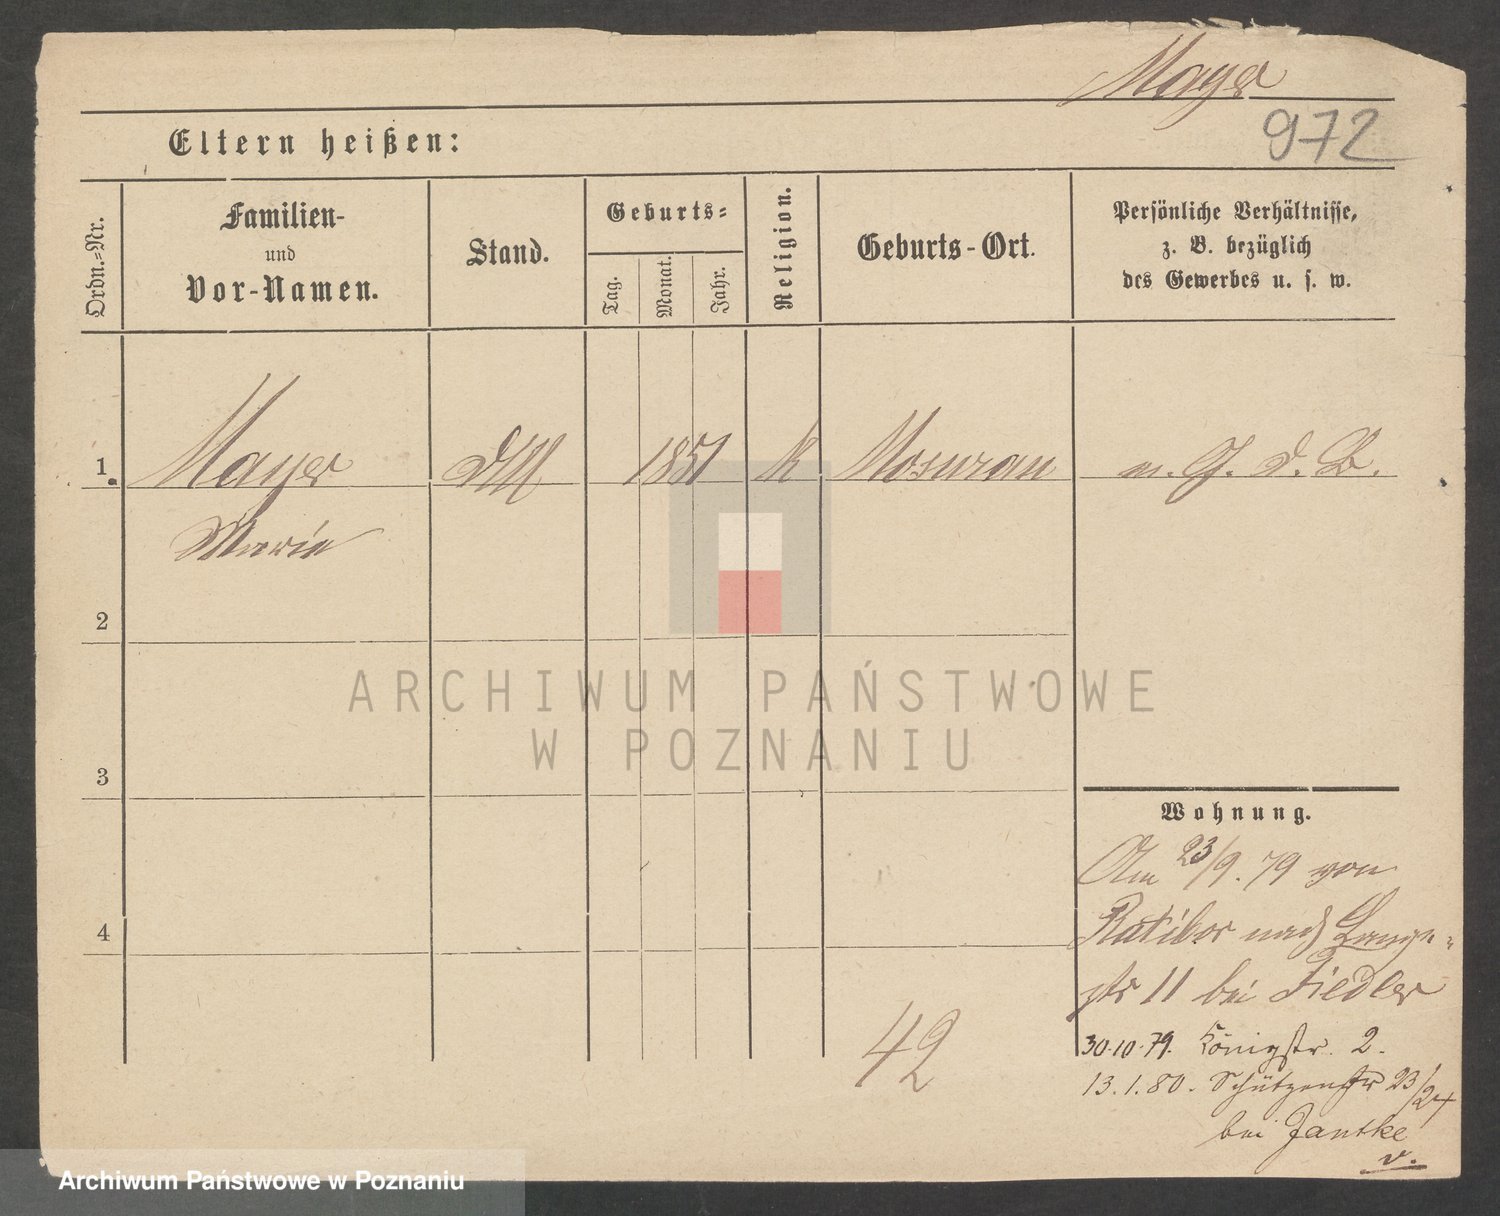 Mayer
972
Eltern heißen:
Ordn.=Nr.
Familien-
und
Vor-Namen.
Stand.
Geburts=
Tag.
Monat.
Jahr.
Religion.
Geburts-Ort.
Persönliche Verhältnisse,
z. B. bezüglich
des Gewerbes u. s. w.
1. Mayer 1851 k
Marie
2
3
4
ARCHIWUM PAŃSTWOWE
W POZNANIU
Wohnung.
Am 23/9. 79 von
Ratibor nach Lange-
str 11 bei Fiedler
30.10.79. Königstr. 2.
13.1.80. Schützenstr 23/24
bei Jantke
v.
42
Archiwum Państwowe w Poznaniu